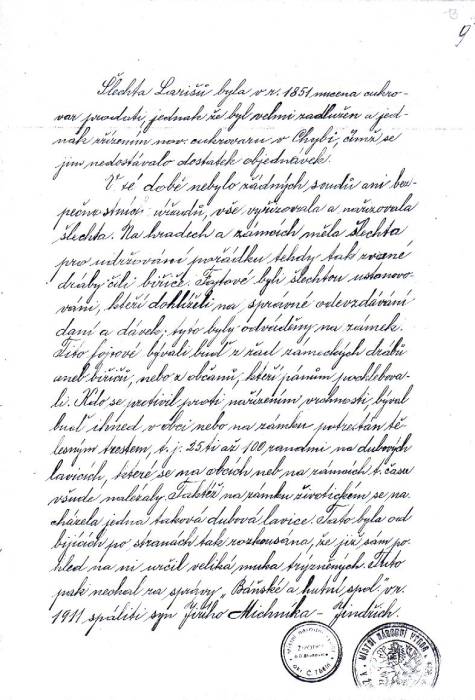 9
Šlechta Larišů byla v r. 1851 nucena cukro-
var prodati, jednak že byl velmi zadlužen a jed-
nak zřízením nov. cukrovaru v Chybí, čímž se
jim nedostávalo dostatek objednávek.
V té době nebylo žádných soudů ani bez-
pečnostních úřadů, vše vyřizovala a nařizovala
šlechta. Na hradech a zámcích měla šlechta
pro udržování pořádku tehdy tak zvané
dráby čili biřice. Fojtové byli šlechtou ustanovo-
váni, kteří dohlíželi na správné odevzdávání
daní a dávek; tyto byly odváděny na zámek.
Tito fojtové bývali buď z řad zámeckých drábů
aneb biřiců, nebo z občanů, kteří pánům pochlebova-
li. Kdo se protivil proti nařízením vrchnosti býval
buď ihned v obci nebo na zámku potrestán tě-
lesným trestem, t. j. 25 ti až 100 ranami na dubových
lavicích, které se na obcích neb na zámcích t. času
všude nalézaly. Taktéž na zámku životickém se na-
cházela jedna taková dubová lavice. Tato byla od
bijících po stranách tak rozkousána, že již sám po-
hled na ni určil veliká muka trýzněných. Tuto
pak nechal za správy „Báňské a hutní spol." v r.
1911 spáliti syn Jiřího Michníka - Jindřich.
MÍSTNÍ NÁRODNÍ VÝBOR